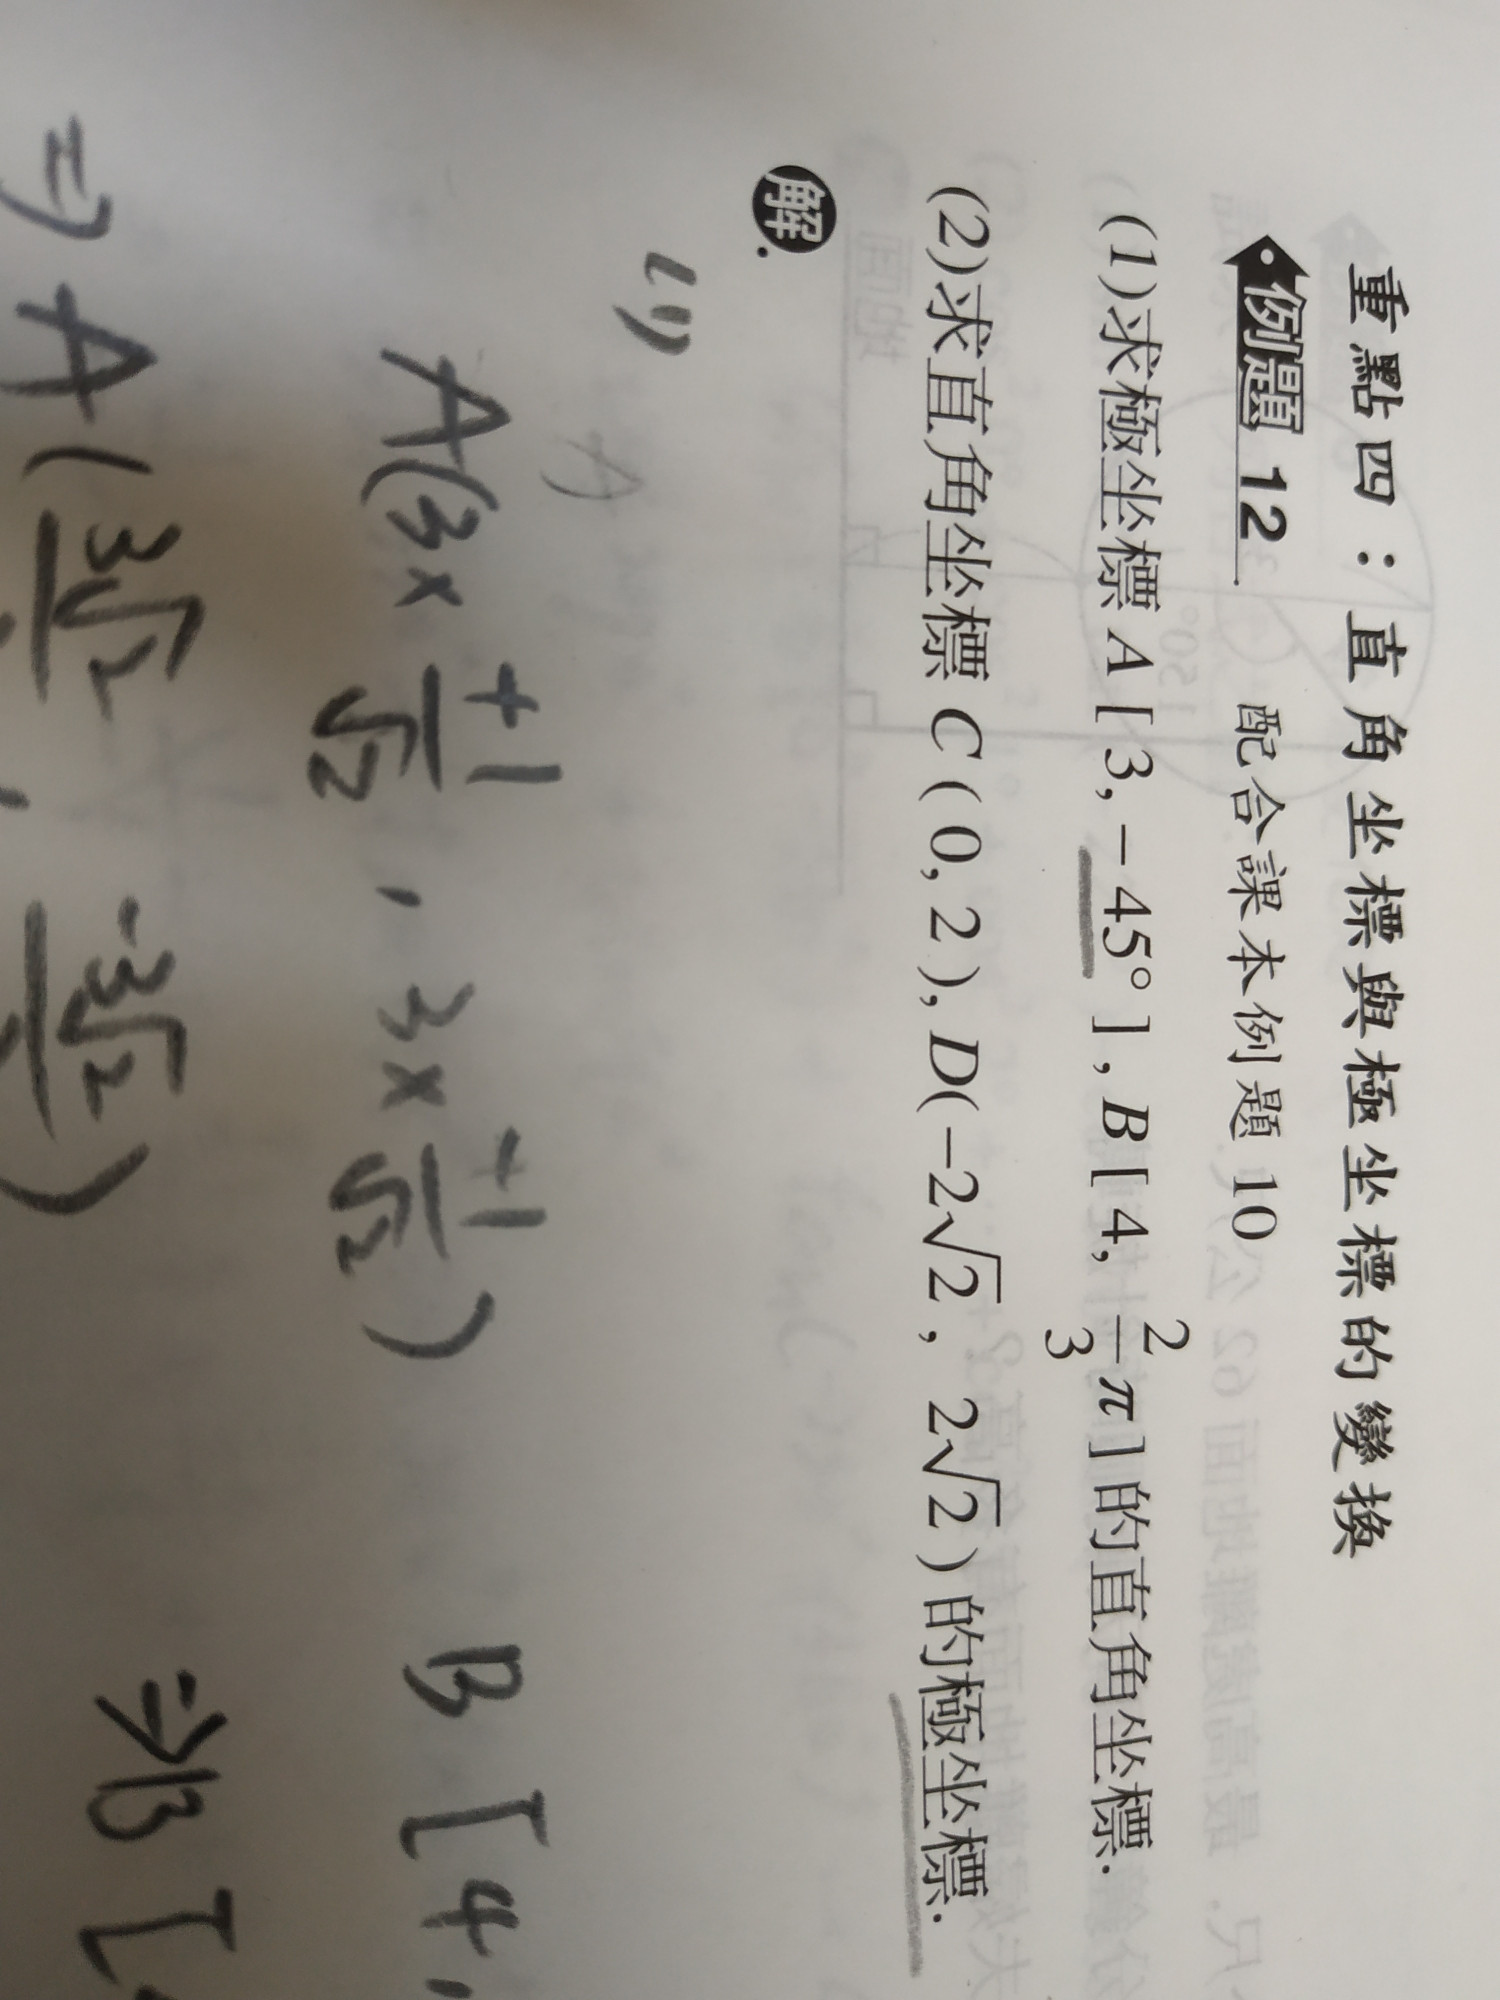 重點四：直角坐標與極坐標的變換
例題 12 配合課本例題 10
(1)求極坐標 A [ 3, −45° ] , B [ 4, 2/3 π ] 的直角坐標.
(2)求直角坐標 C ( 0, 2 ), D(−2√2 , 2√2 ) 的極坐標.
解.
(1)
A(3× +1/√2 , 3× +1/√2 ) B [ 4,
⇒ A ( 3√2 , -3√2 ) ⇒ B [